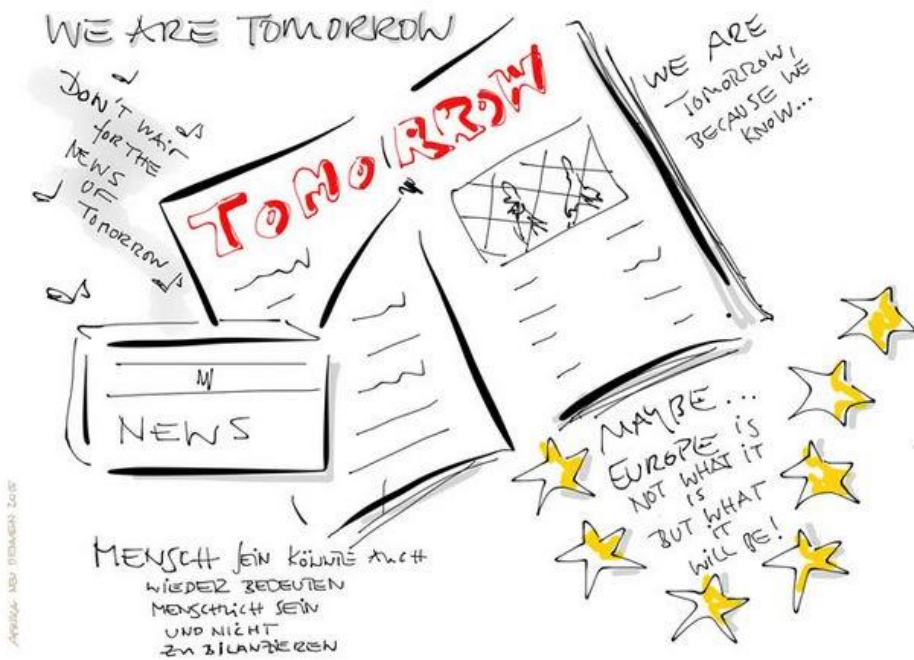 WE ARE TOMORROW
DON'T WAIT
FOR THE
NEWS
OF
TOMORROW
TOMORROW
WE ARE
TOMORROW,
BECAUSE WE
KNOW...
NEWS
MAYBE...
EUROPE IS
NOT WHAT IT
IS
BUT WHAT
IT
WILL BE!
MENSCH SEIN KÖNNTE AUCH
WIEDER BEDEUTEN
MENSCHLICH SEIN
UND NICHT
ZU BILANZIEREN
NEU DENKEN 2015